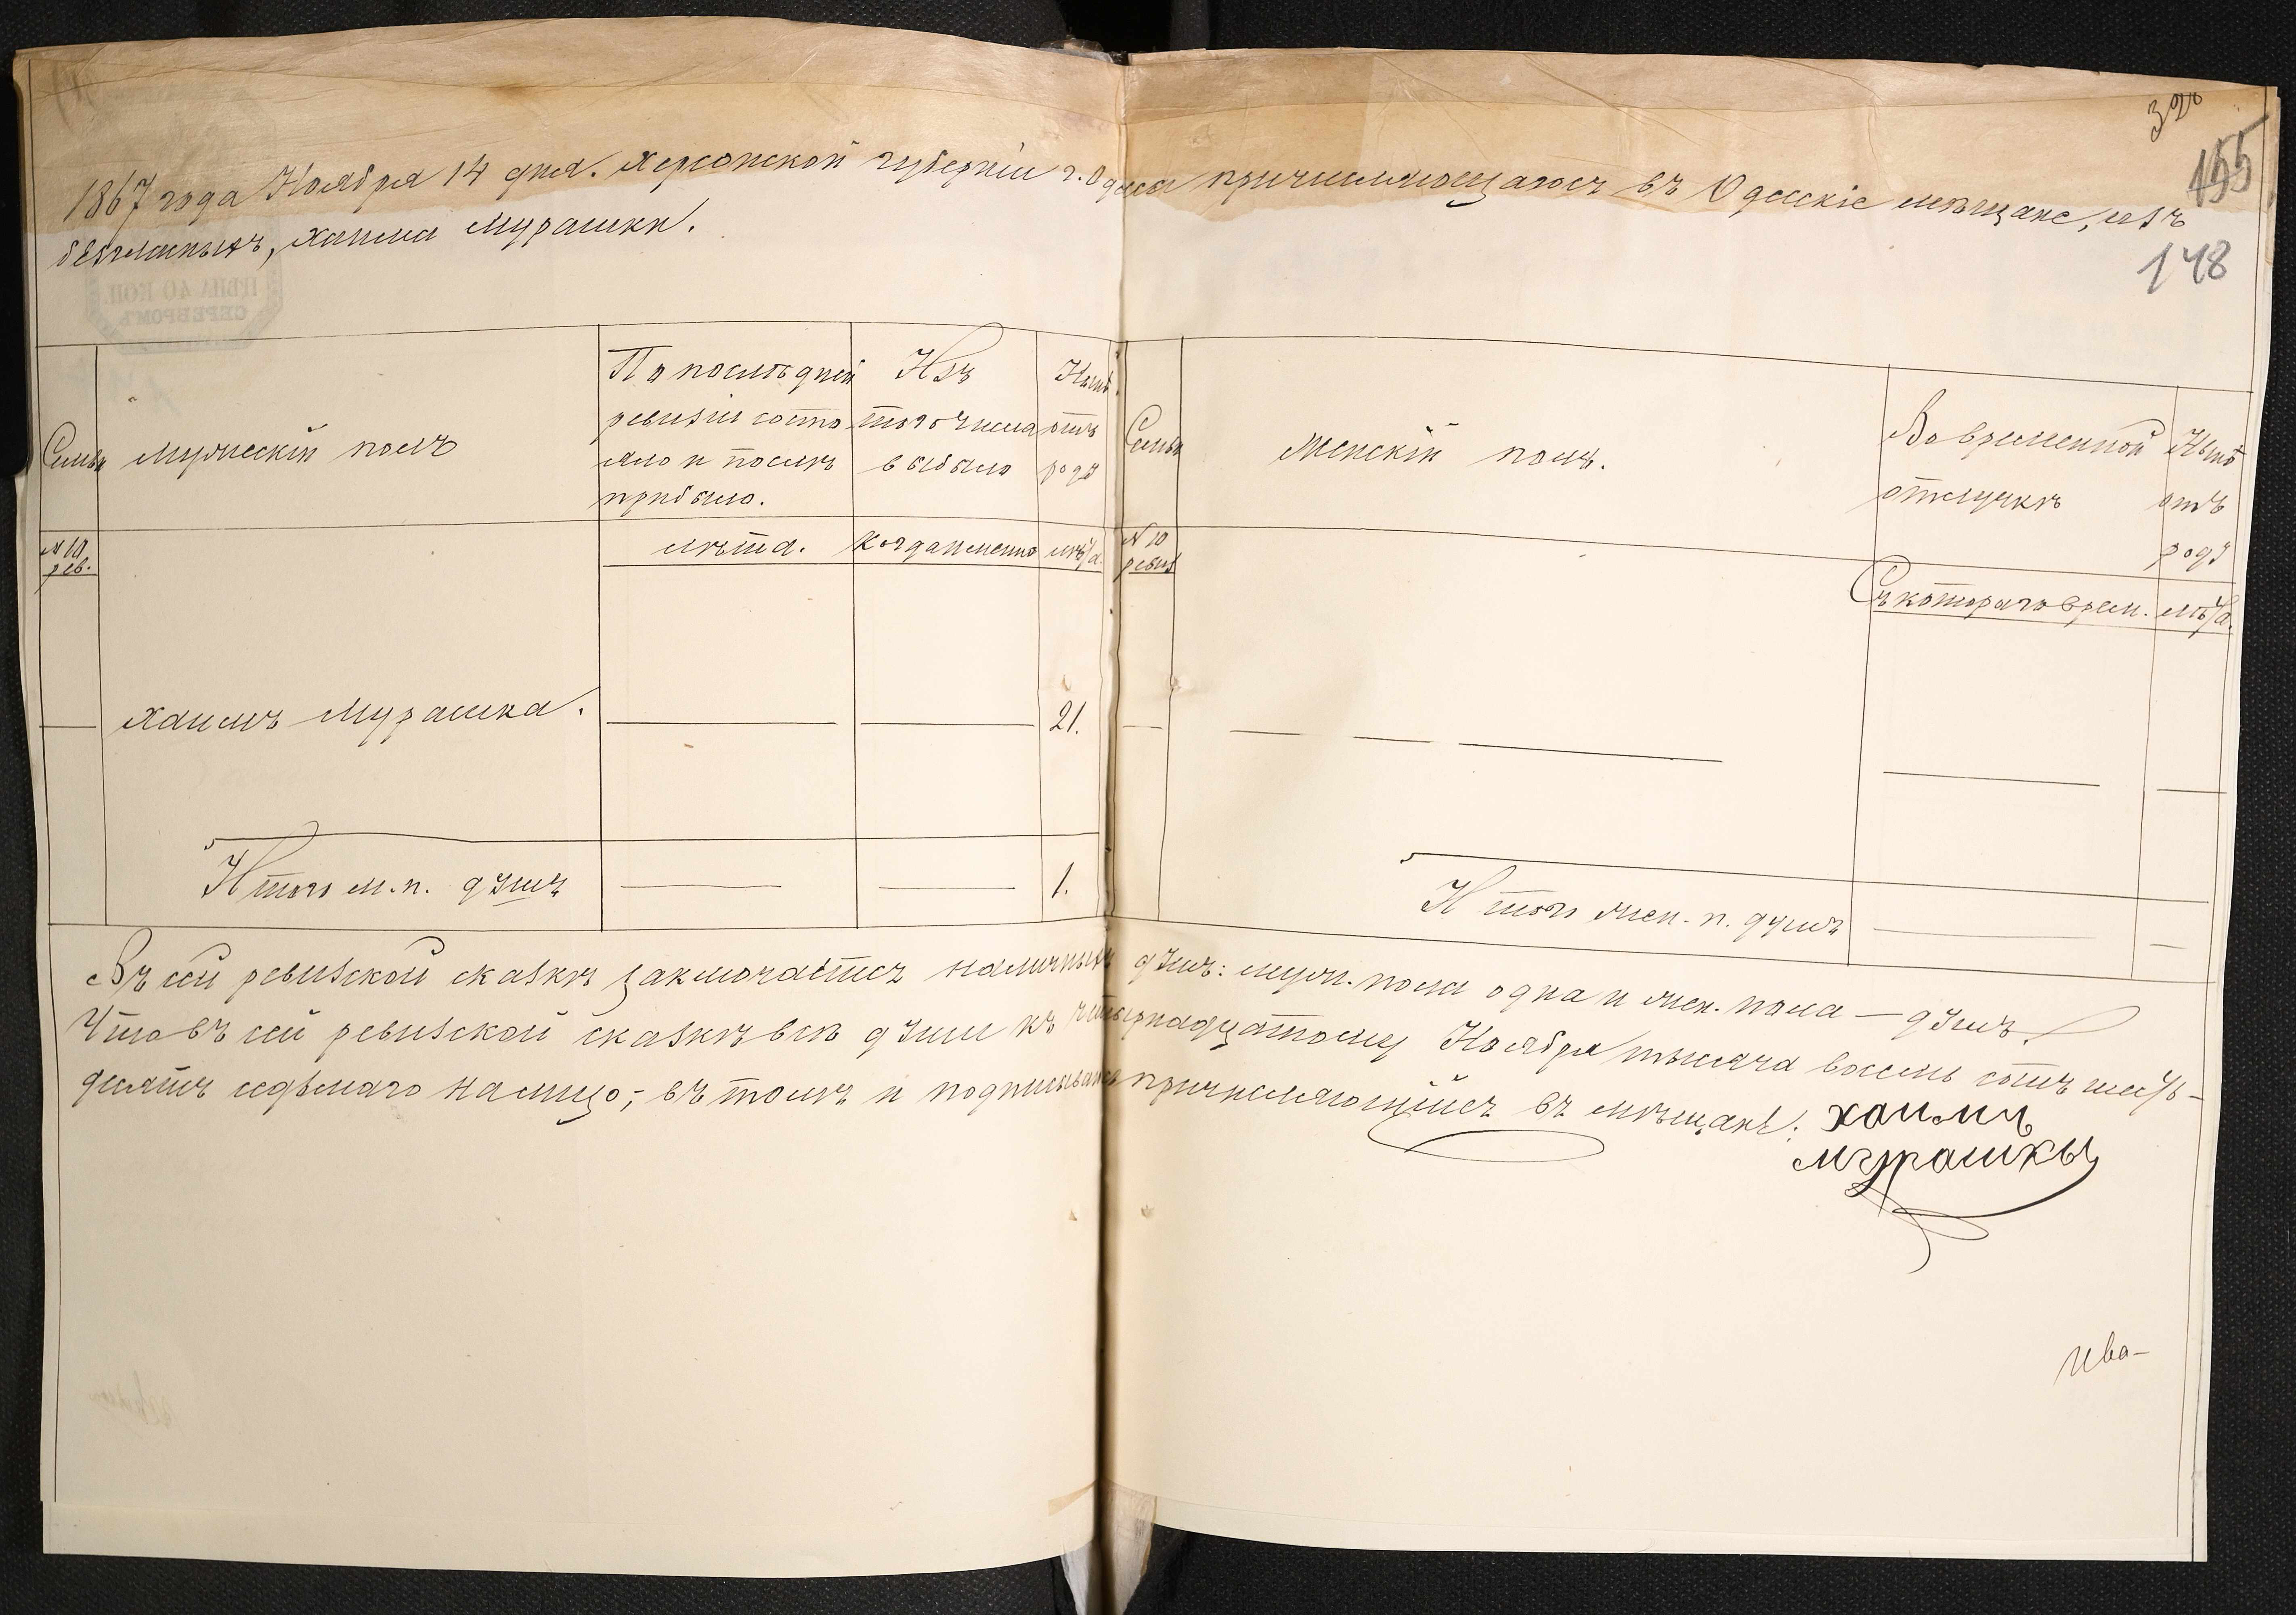 155
148
1867 года Ноября 14 дня. Херсонской губерніи г. Одесса причисляющагося въ Одесскіе мѣщане, изъ
безгласныхъ, Хаима Мурашки.
ЦѢНА 40 КОП.
СЕРЕБРОМЪ
Семьи
Мужескій полъ
По послѣдней
ревизіи состо
яло и послѣ
прибыло.
Изъ
того числа
выбыло
Нынѣ
отъ
роду
Семьи
Женскій полъ.
Во временной
отлучкѣ
Нынѣ
отъ
роду
№ 10
рев.
лѣта.
когда именно
лѣта.
№ 10
ревиз
Съ котораго врем.
лѣта.
— Хаимъ Мурашка. — — 21. — — — — — —
Итого м. п. душъ — — 1.
Итого жен. п. душъ — —
Въ сей ревизской сказкѣ заключается наличныхъ душъ: муж. пола одна и жен. пола — душъ.
Что въ сей ревизской сказкѣ всѣ души къ четырнадцатому Ноября тысяча восемь сотъ шесть-
десятъ седьмаго налицо; въ томъ и подписываюсь причисляющійся въ мѣщане: Хаимъ
Мурашкы
ива-